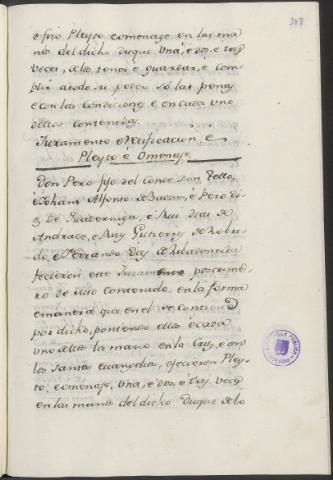 307
e fiso Pleyto e omenage en las ma
nos del dicho Duque Una, e dos, e tres
veces, de los tener e guardar, e com
plir a todo su poder so las penas
e con las condiciones e en cada uno
dellos contenidas.
Juramento e retificacion e
Pleyto e Omenage
Don Pero fijo del Conde Don Tello,
e Joham Alfonso de Baeza, e Pero Di
az de
Andrade, e Ruy Gutierrez de
do, e Ferrando Diez de
fecieron este Juramento postrime
ro de suso contenido, en la forma
e manera que en el se contiene
por dicho, poniendo ellos e cada
uno dellos la mano en la Cruz, e en
los santos evangelios, e fecieron Pley
to, e omenage, Una, e dos, e tres veces
en las manos del dicho Duque de lo